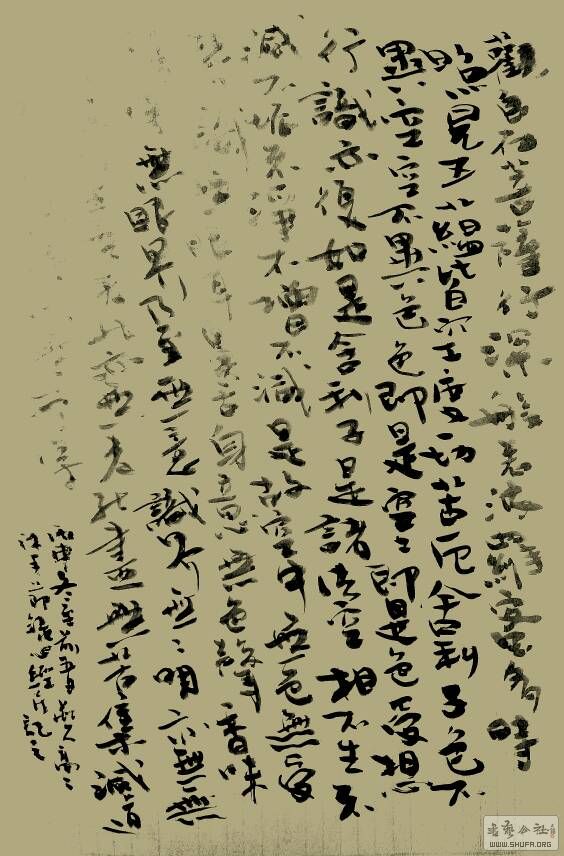 觀自在菩薩行深般若波羅蜜多時
照見五蘊皆空度一切苦厄舍利子色不
異空空不異色色即是空〻即是色受想
行識亦復如是舍利子是諸法空相不生不
滅不垢不淨不增不減是故空中無色無受
識無眼耳鼻舌身意無色聲香味
無眼界乃至無意識界無〻明亦無無
至無老死亦無老死盡無苦集滅道
丙申冬至前
節錄心經
WWW.SHUFA.ORG